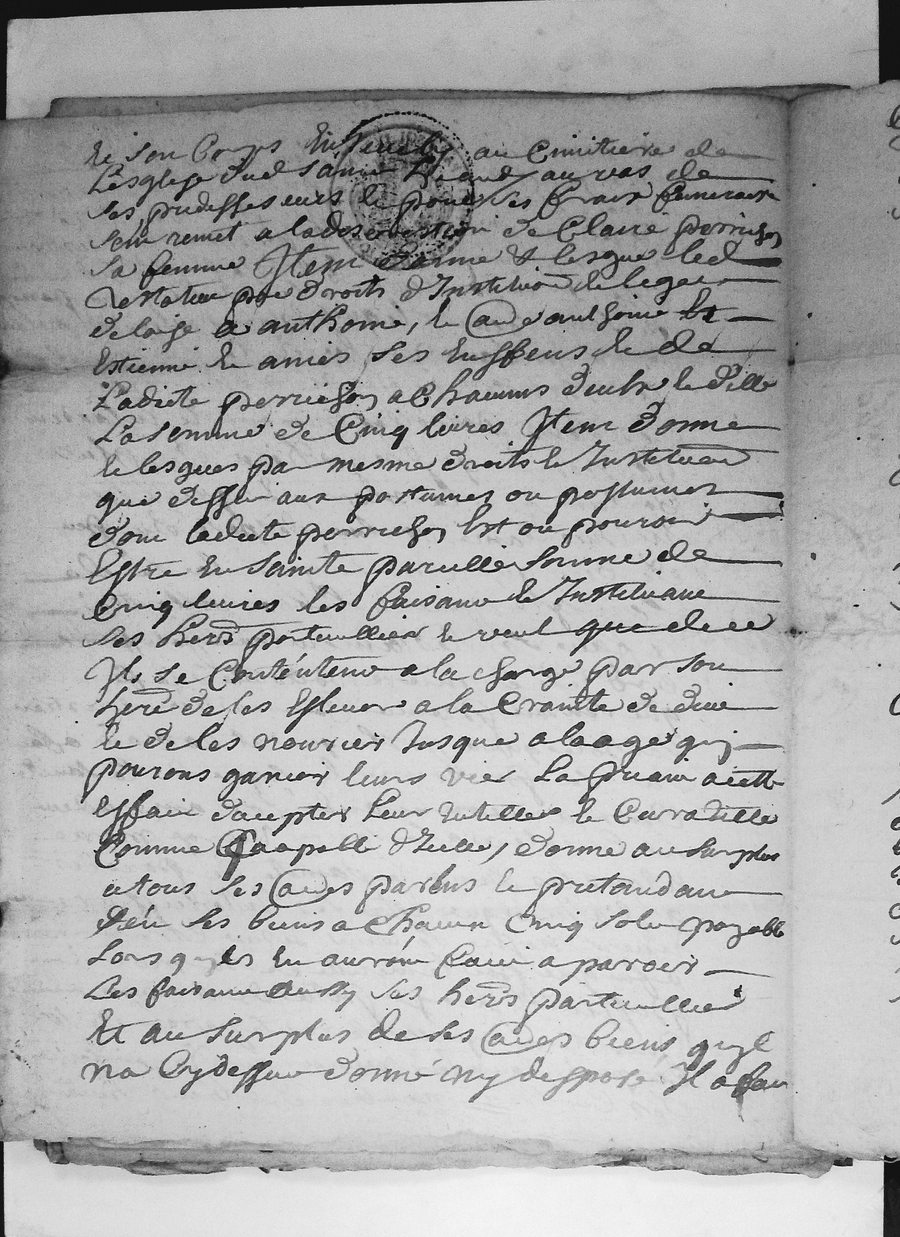 et son Corps Ensevely au Cimitiere de
Lesglise dud saint au vas de
ses prudessesurs et pour ses fraix funeraire
sen remet a la descretion de Claire perrichon
sa femme Item donne & legue led
testateur par droits d'Institution de leguer
delaise a anthoine, et autre anthoine et
Estienne et amies ses Enffens et de
Ladicte perrichon a Chacuns deulx et dille
La somme de Cinq livres Item donne
et lesgues par mesme droits et Institution
que dessu aux postumes ou postumes
dont ladicte perrichon Est ou pouroit
Estre En sainte pareille somme de
Cinq livres les faisant et Instituant
ses herᵈˢ particulliers et veut que de ce
Ils se Contentent a la charge par son
herᵈ de les Eslever a la Crainte de dieu
et de les nourrier Jusque a laage quj
pourons ganier leurs vier La priant a cette
Effaict daccepter leur tutelle et Curatelle
Comme Cappable d'Icelle, donne au surplus
a tous ses autres parens et pretandant
den ses biens a Chacun Cinq sols payable
Lors quils En auront faict a paroir
Les faisant aussy ses herᵈˢ particullier
Et au surplus de ses autres biens quil
na Cy dessue donné ny disposé Il a fait